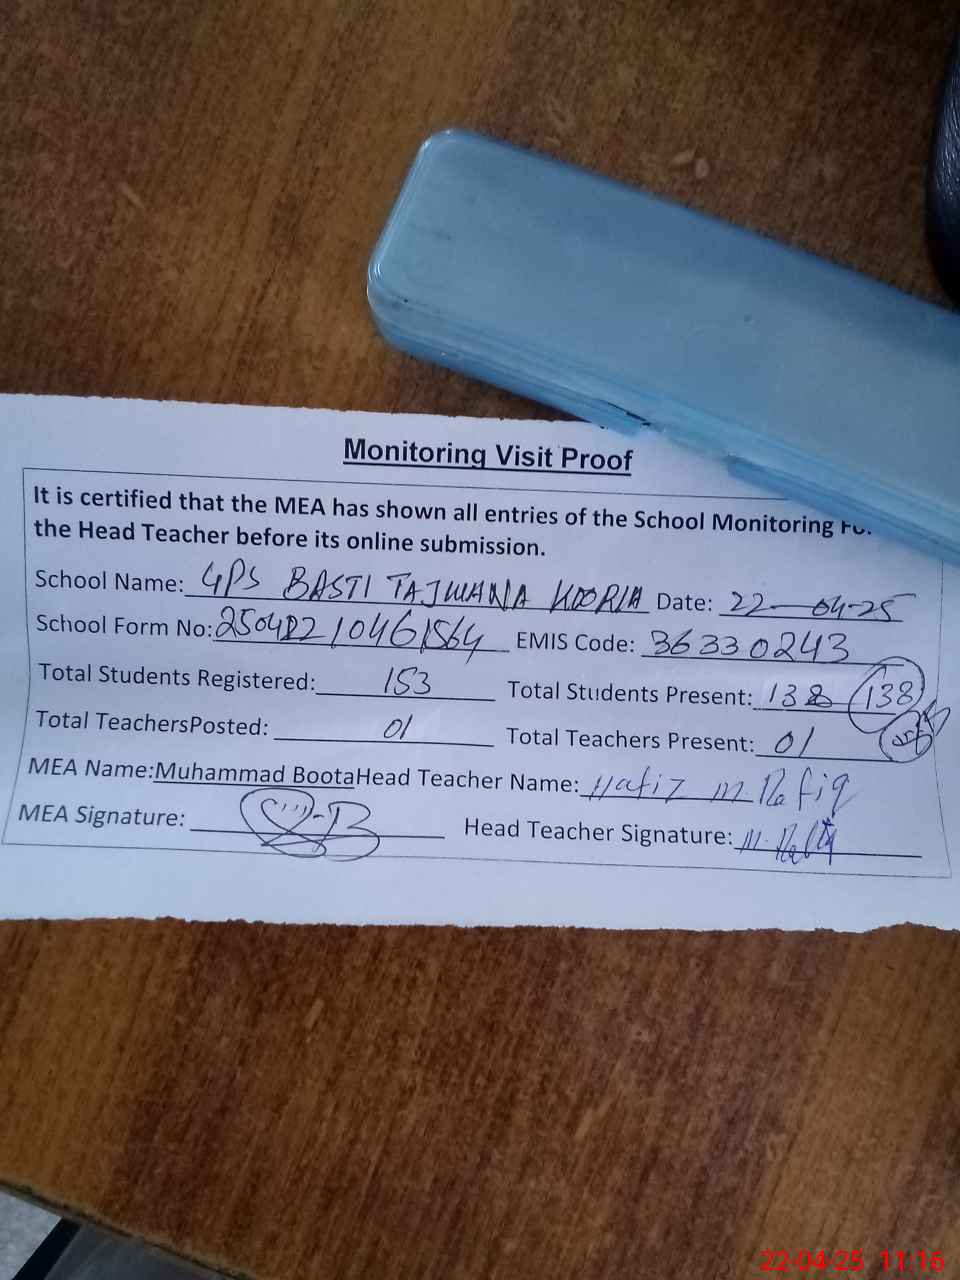 Monitoring Visit Proof
It is certified that the MEA has shown all entries of the School Monitoring
the Head Teacher before its online submission.
School Name: GPS BASTI TAJWANA KOORIA Date: 22-04-25
School Form No: EMIS Code: 36330243
Total Students Registered: 153 Total Students Present: 138 138
Total TeachersPosted: 01 Total Teachers Present: 01
MEA Name: Muhammad Boota Head Teacher Name: Hafiz M. Rafiq
MEA Signature: Head Teacher Signature: M. Rafiq
22-04-25 11:16